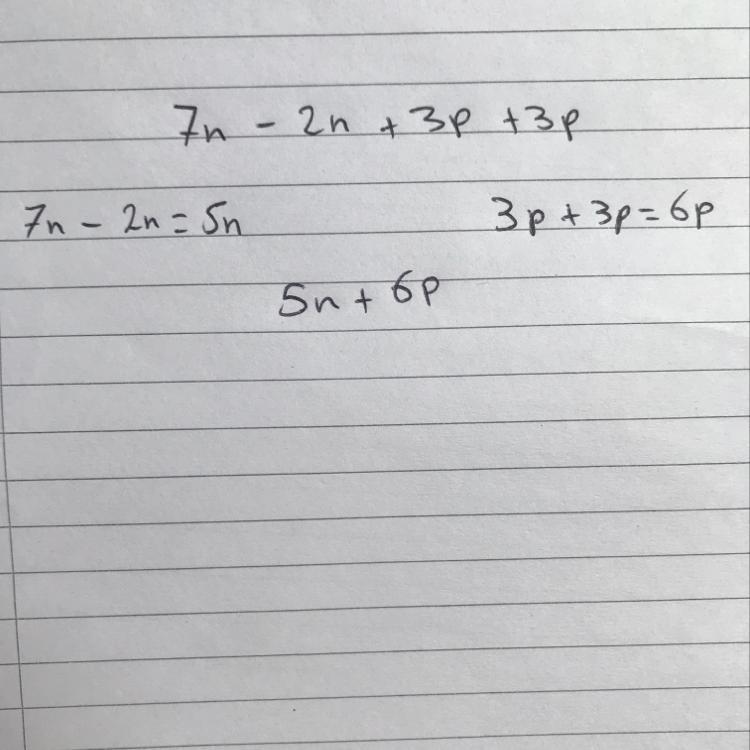 7n - 2n + 3p + 3p
7n - 2n = 5n 3p + 3p = 6p
5n + 6p